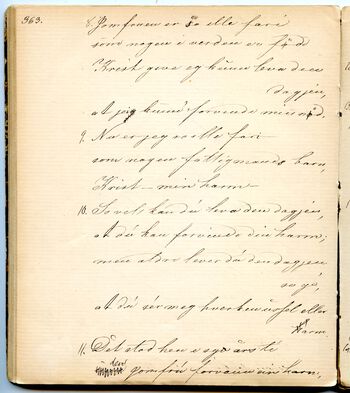 363.
8. Jomfruen er så elle fari
som nogen i verden er fød
Krist give eg kunne leva den
dagjen,
at jeg kunde forvende min nød.
9. Nu er jeg so elle fari—
som nogen fattigmands barn,
Krist — min harm—
10. So vel kan du leva den dagjen,
at du kan forvinde din harm;
men aldre lever du den dagjen
so gó,
at du sér meg hverken ussel eller
harm.
11. Det stod hen i syv års ti
den
jomfru forvan sin harm,